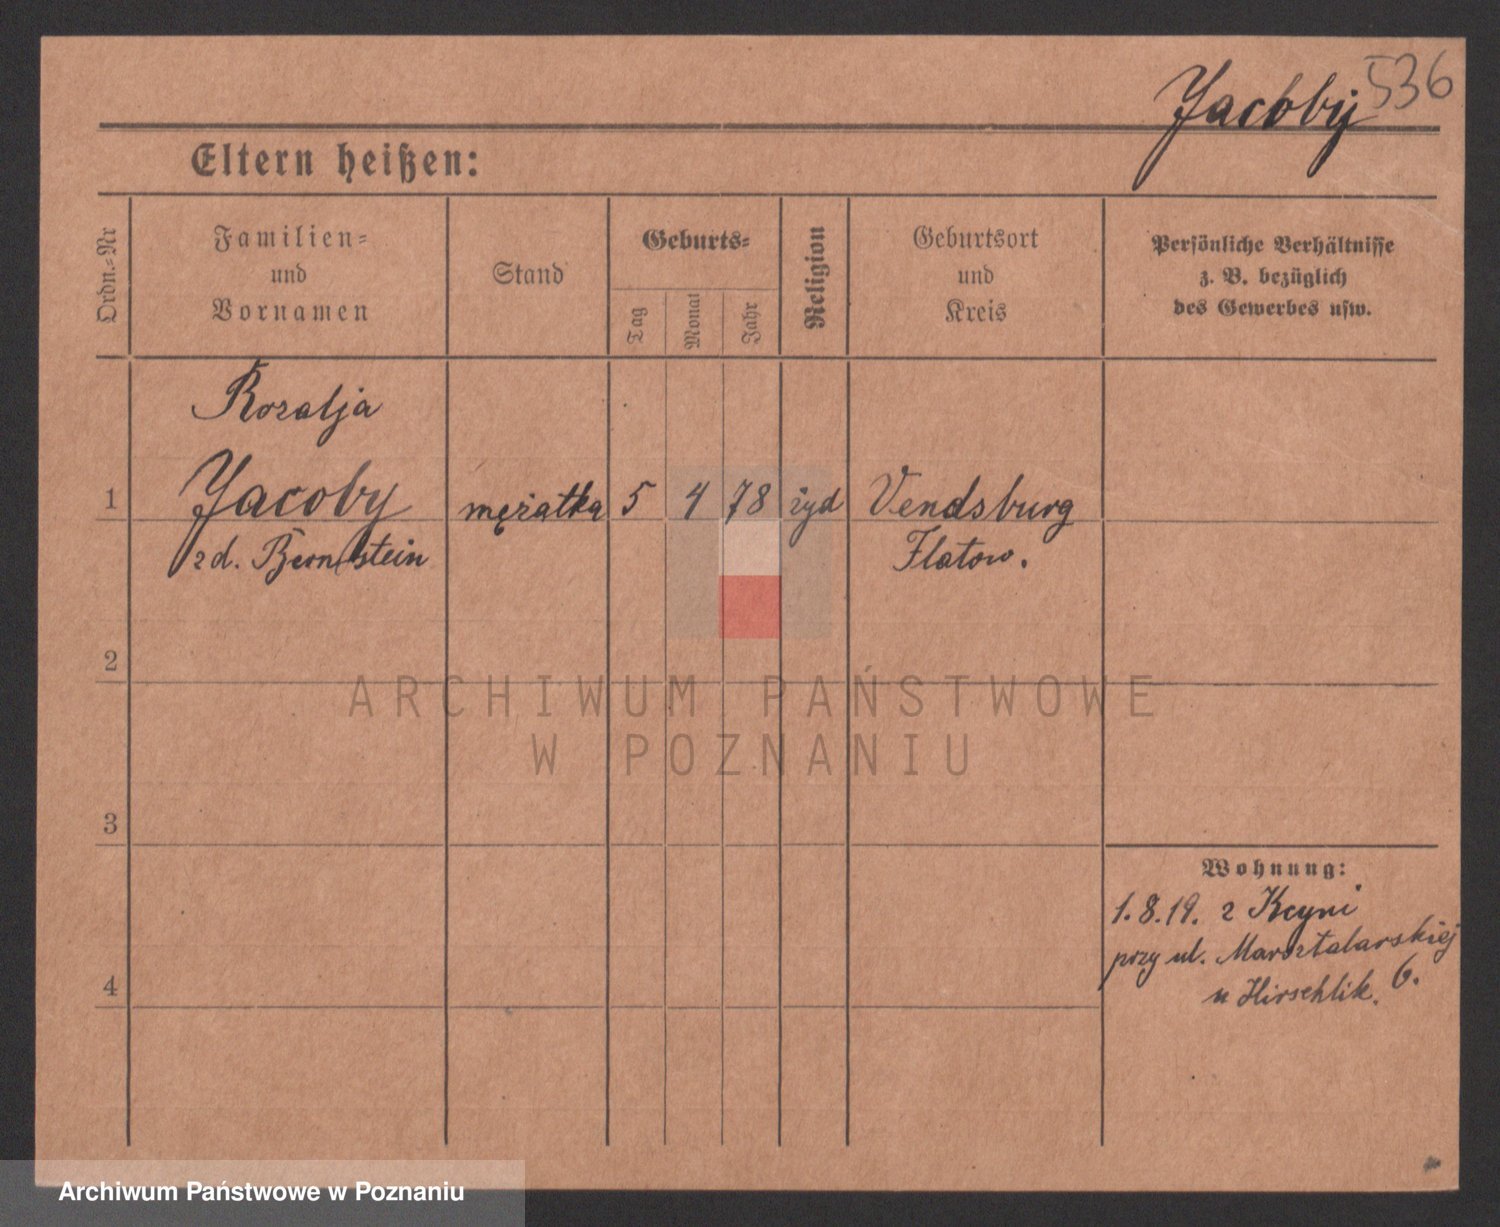 Jacoby 536
Eltern heißen:
Ordn.-Nr
Familien-
und
Vornamen
Stand
Geburts-
Tag
Monat
Jahr
Religion
Geburtsort
und
Kreis
Persönliche Verhältnisse
z. B. bezüglich
des Gewerbes usw.
Rozalja
1 Jacoby mężatka 5 4 78 żyd Vendsburg
zd. Bernstein Flatow.
2
3
4
Wohnung:
1.8.19. z Kcyni
przy ul. Marsztalarskiej
u Hirschlik. 6.
ARCHIWUM PAŃSTWOWE
W POZNANIU
Archiwum Państwowe w Poznaniu